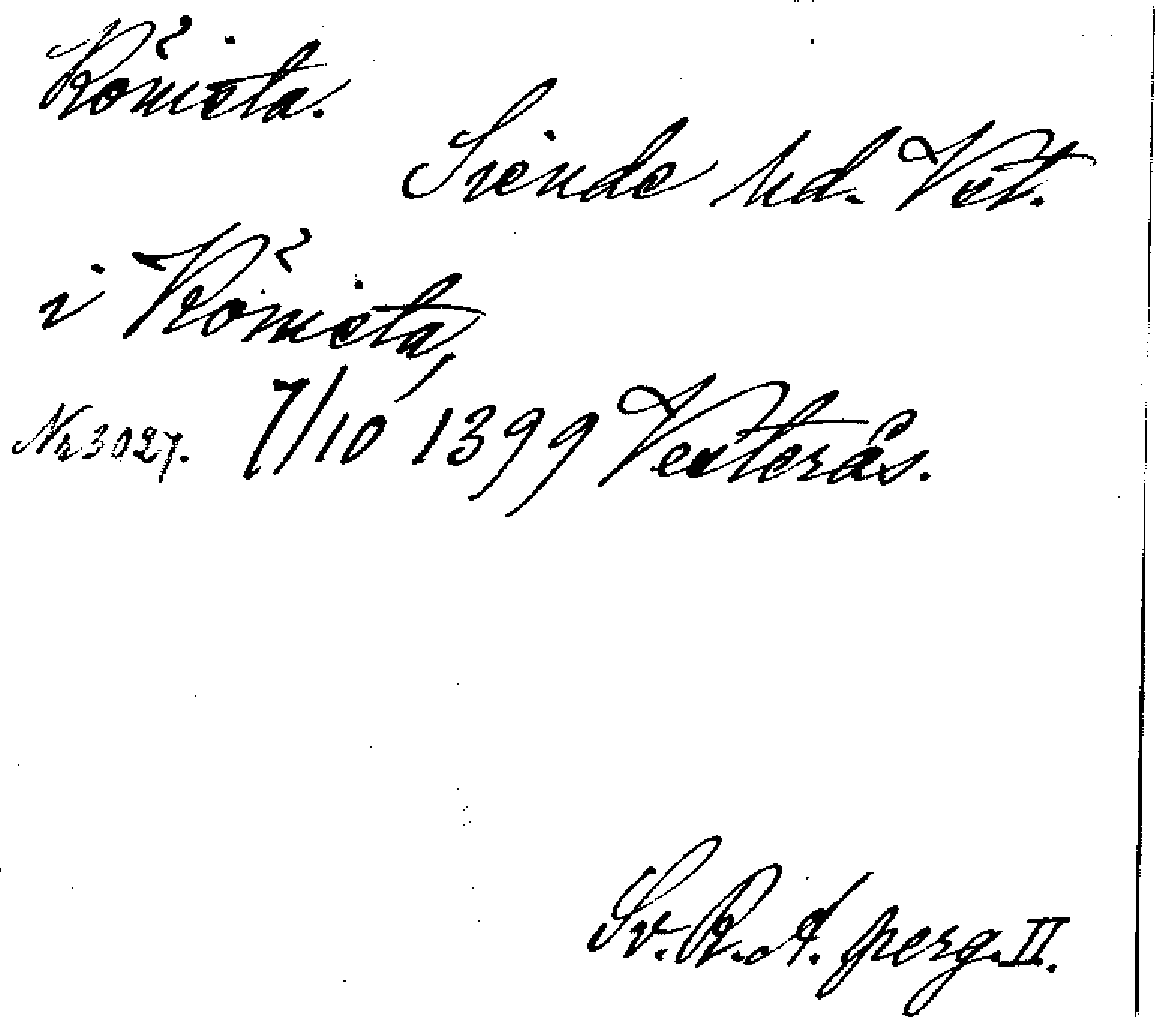 Könista.
Siende hd. Vst.
i Könista,
Nr 3027. 7/10 1399 Vesterås.
Sv. R. A. perg. II.